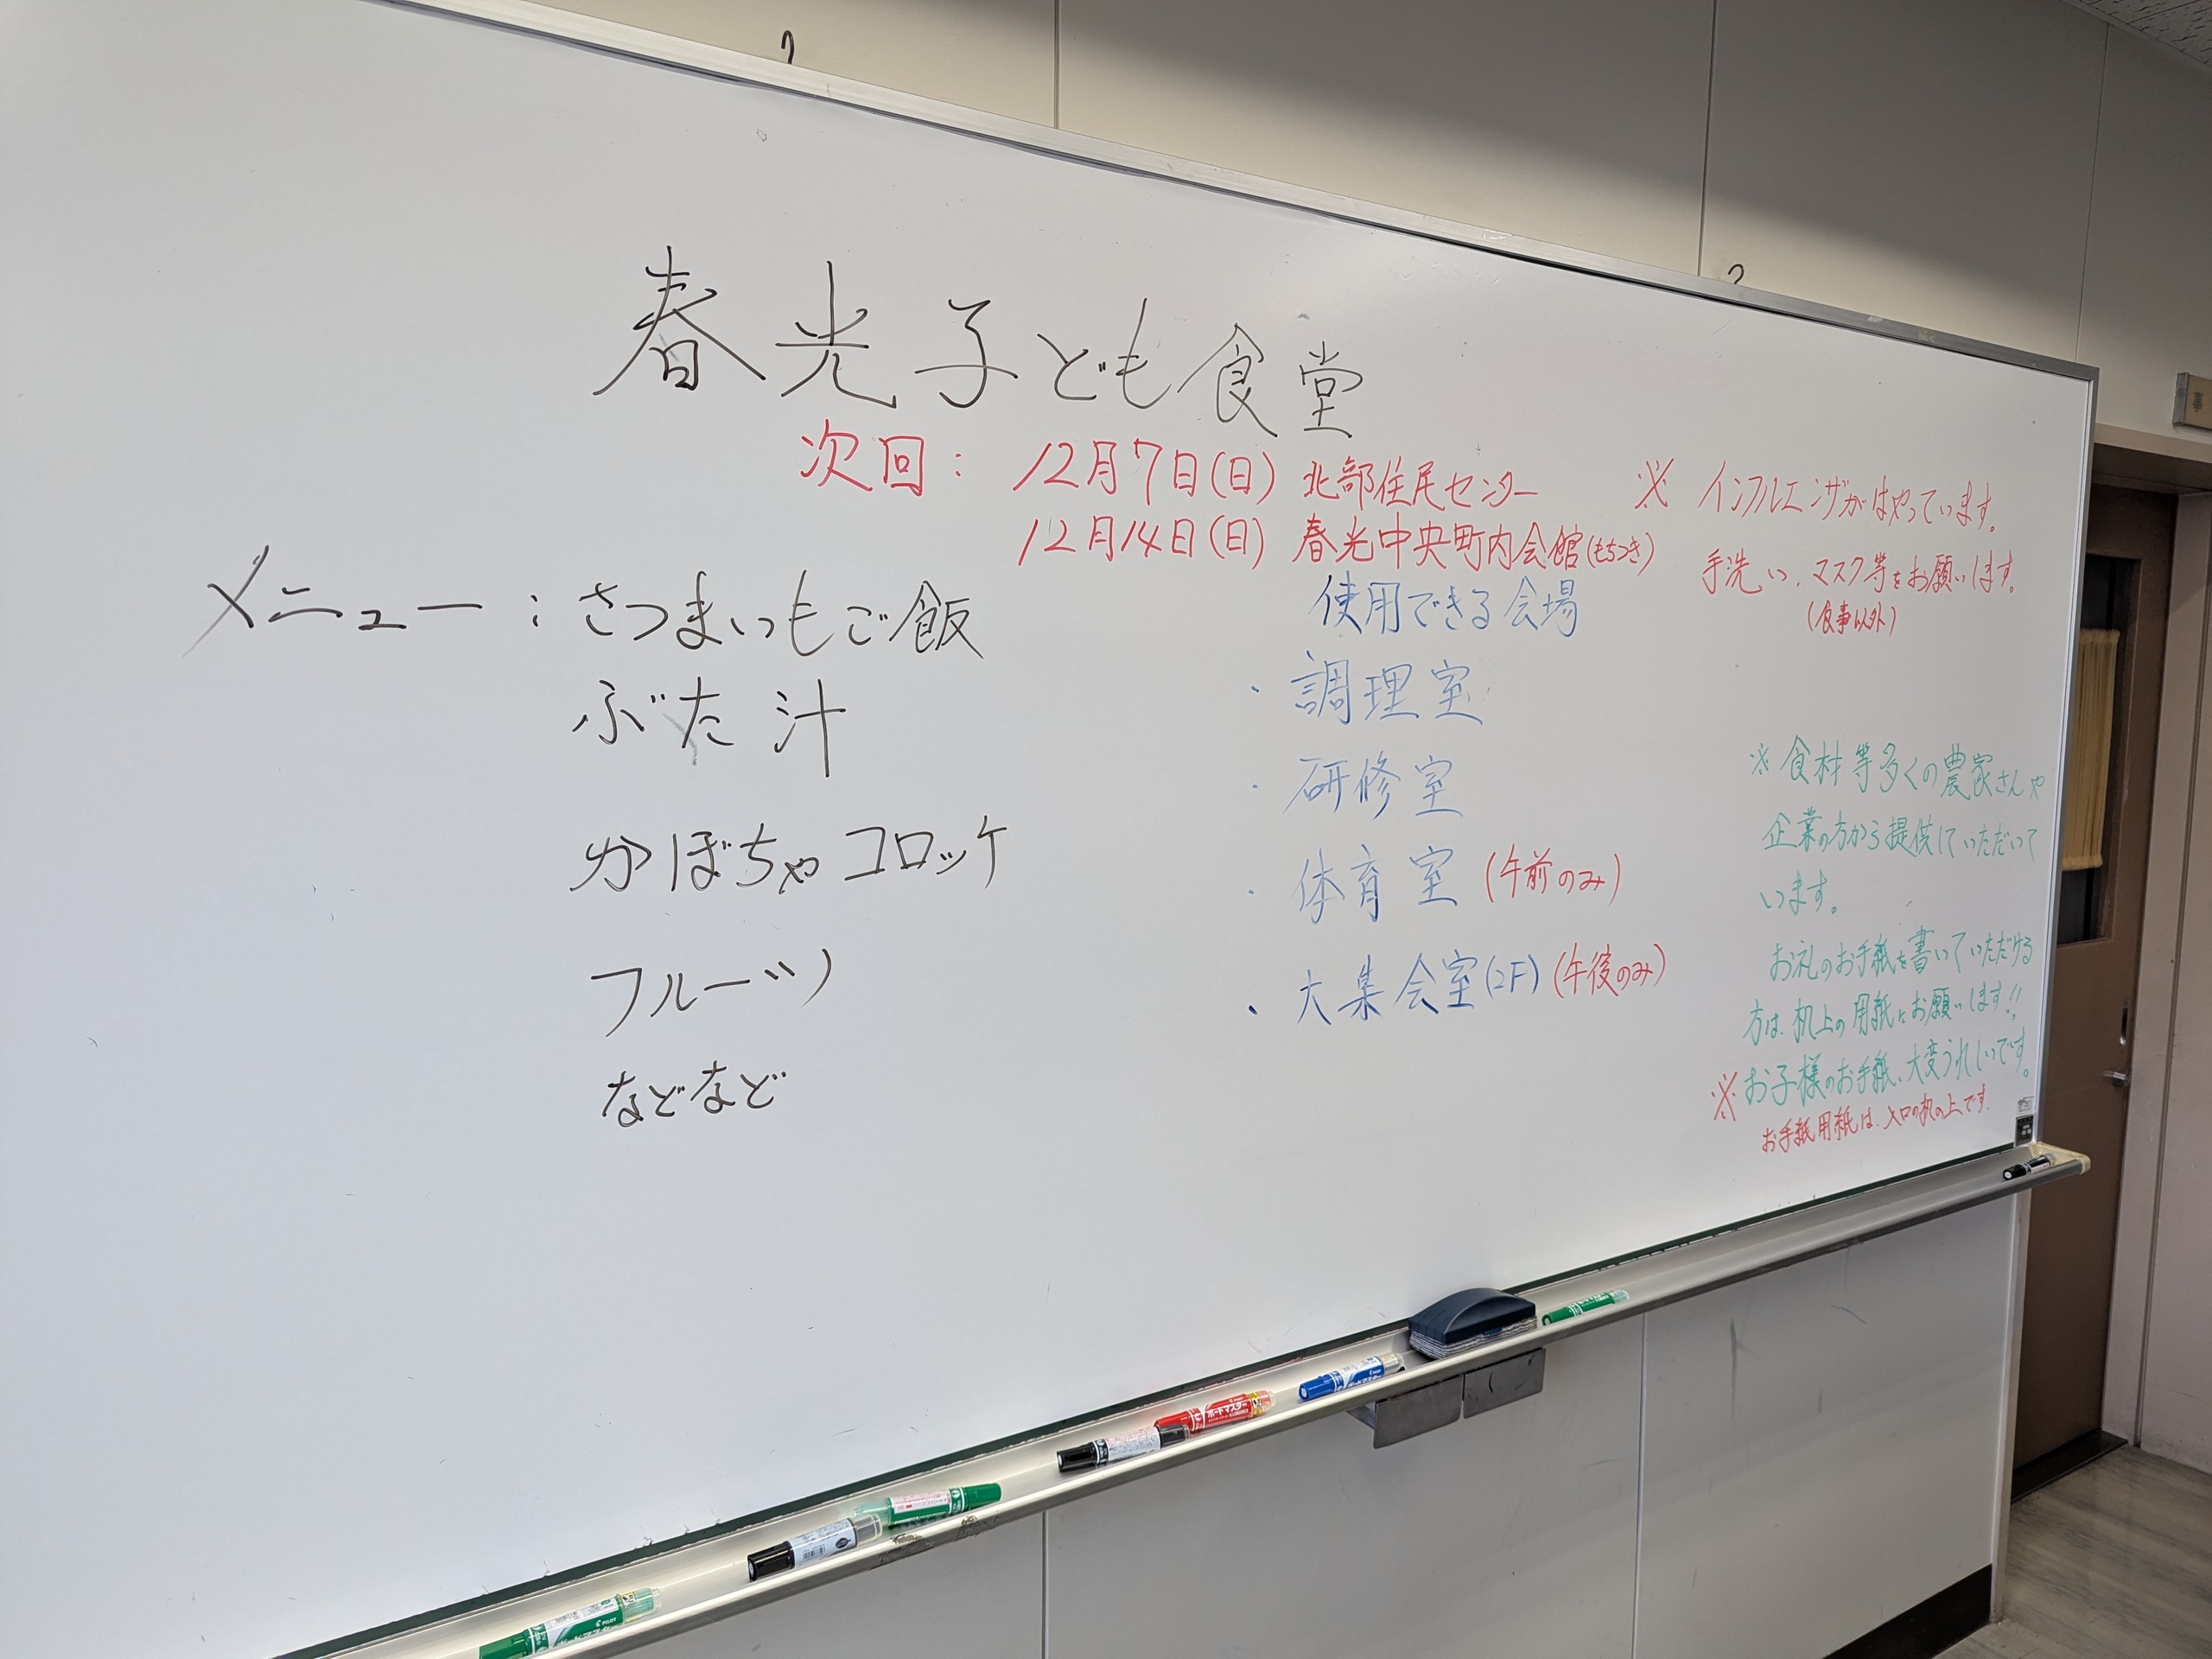 春光子ども食堂
次回: 12月7日(日) 北部住民センター
12月14日(日) 春光中央町内会館(もちつき)
※ インフルエンザがはやっています。
手洗い、マスク等をお願いします。
(食事以外)
メニュー:さつまいもご飯
ぶた汁
かぼちゃコロッケ
フルーツ
などなど
使用できる会場
・調理室
・研修室
・体育室(午前のみ)
・大集会室(2F)(午後のみ)
※食材等多くの農家さんや
企業の方から提供していただいて
います。
お礼のお手紙を書いていただける
方は、机上の用紙にお願いします!!
※お子様のお手紙、大変うれしいです。
お手紙用紙は、入口の机の上です。
ボードマスター
PILOT